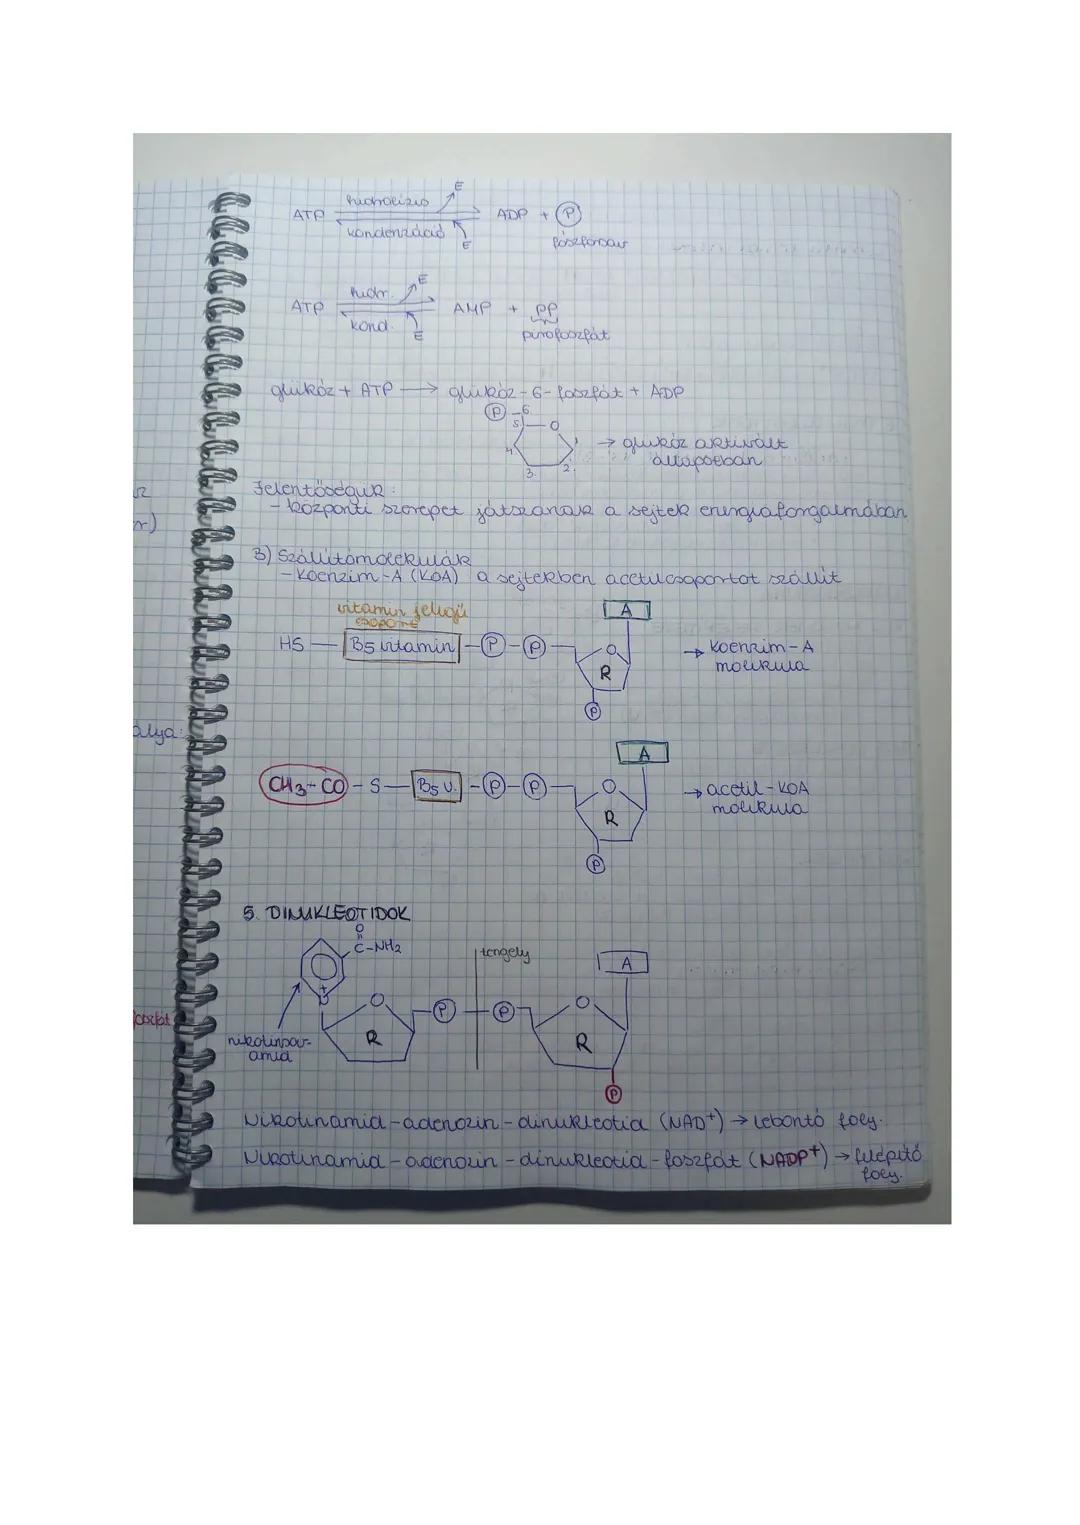 ATP hidrolízis E ADP + P
kondenzáció E foszforsav
ATP hidr. E AMP + PP
kond. E pirofoszfát
glükóz + ATP → glükóz-6-foszfát + ADP
P 6
5 O
4. 1
3. 2.
→ glükóz aktivált
állapotban
Jelentőségük:
- központi szerepet játszanak a sejtek energiaforgalmában
B) Szállítómolekulák
- Koenzim-A (KoA) a sejtekben acetilcsoportot szállít
vitamin jellegű
csoport
A
HS — B5 vitamin - P - P O R P
→ koenzim-A
molekula
A
CH3-CO - S - B5 v. - P - P O R P
→ acetil-KoA
molekula
5. DINUKLEOTIDOK
O
C-NH2
tengely
A
+
O R P P O R P
nikotinsav-
amid
Nikotinamid-adenozin-dinukleotid (NAD+) → lebontó foly.
Nikotinamid-adenozin-dinukleotid-foszfát (NADP+) → felépítő
foly.
álya: